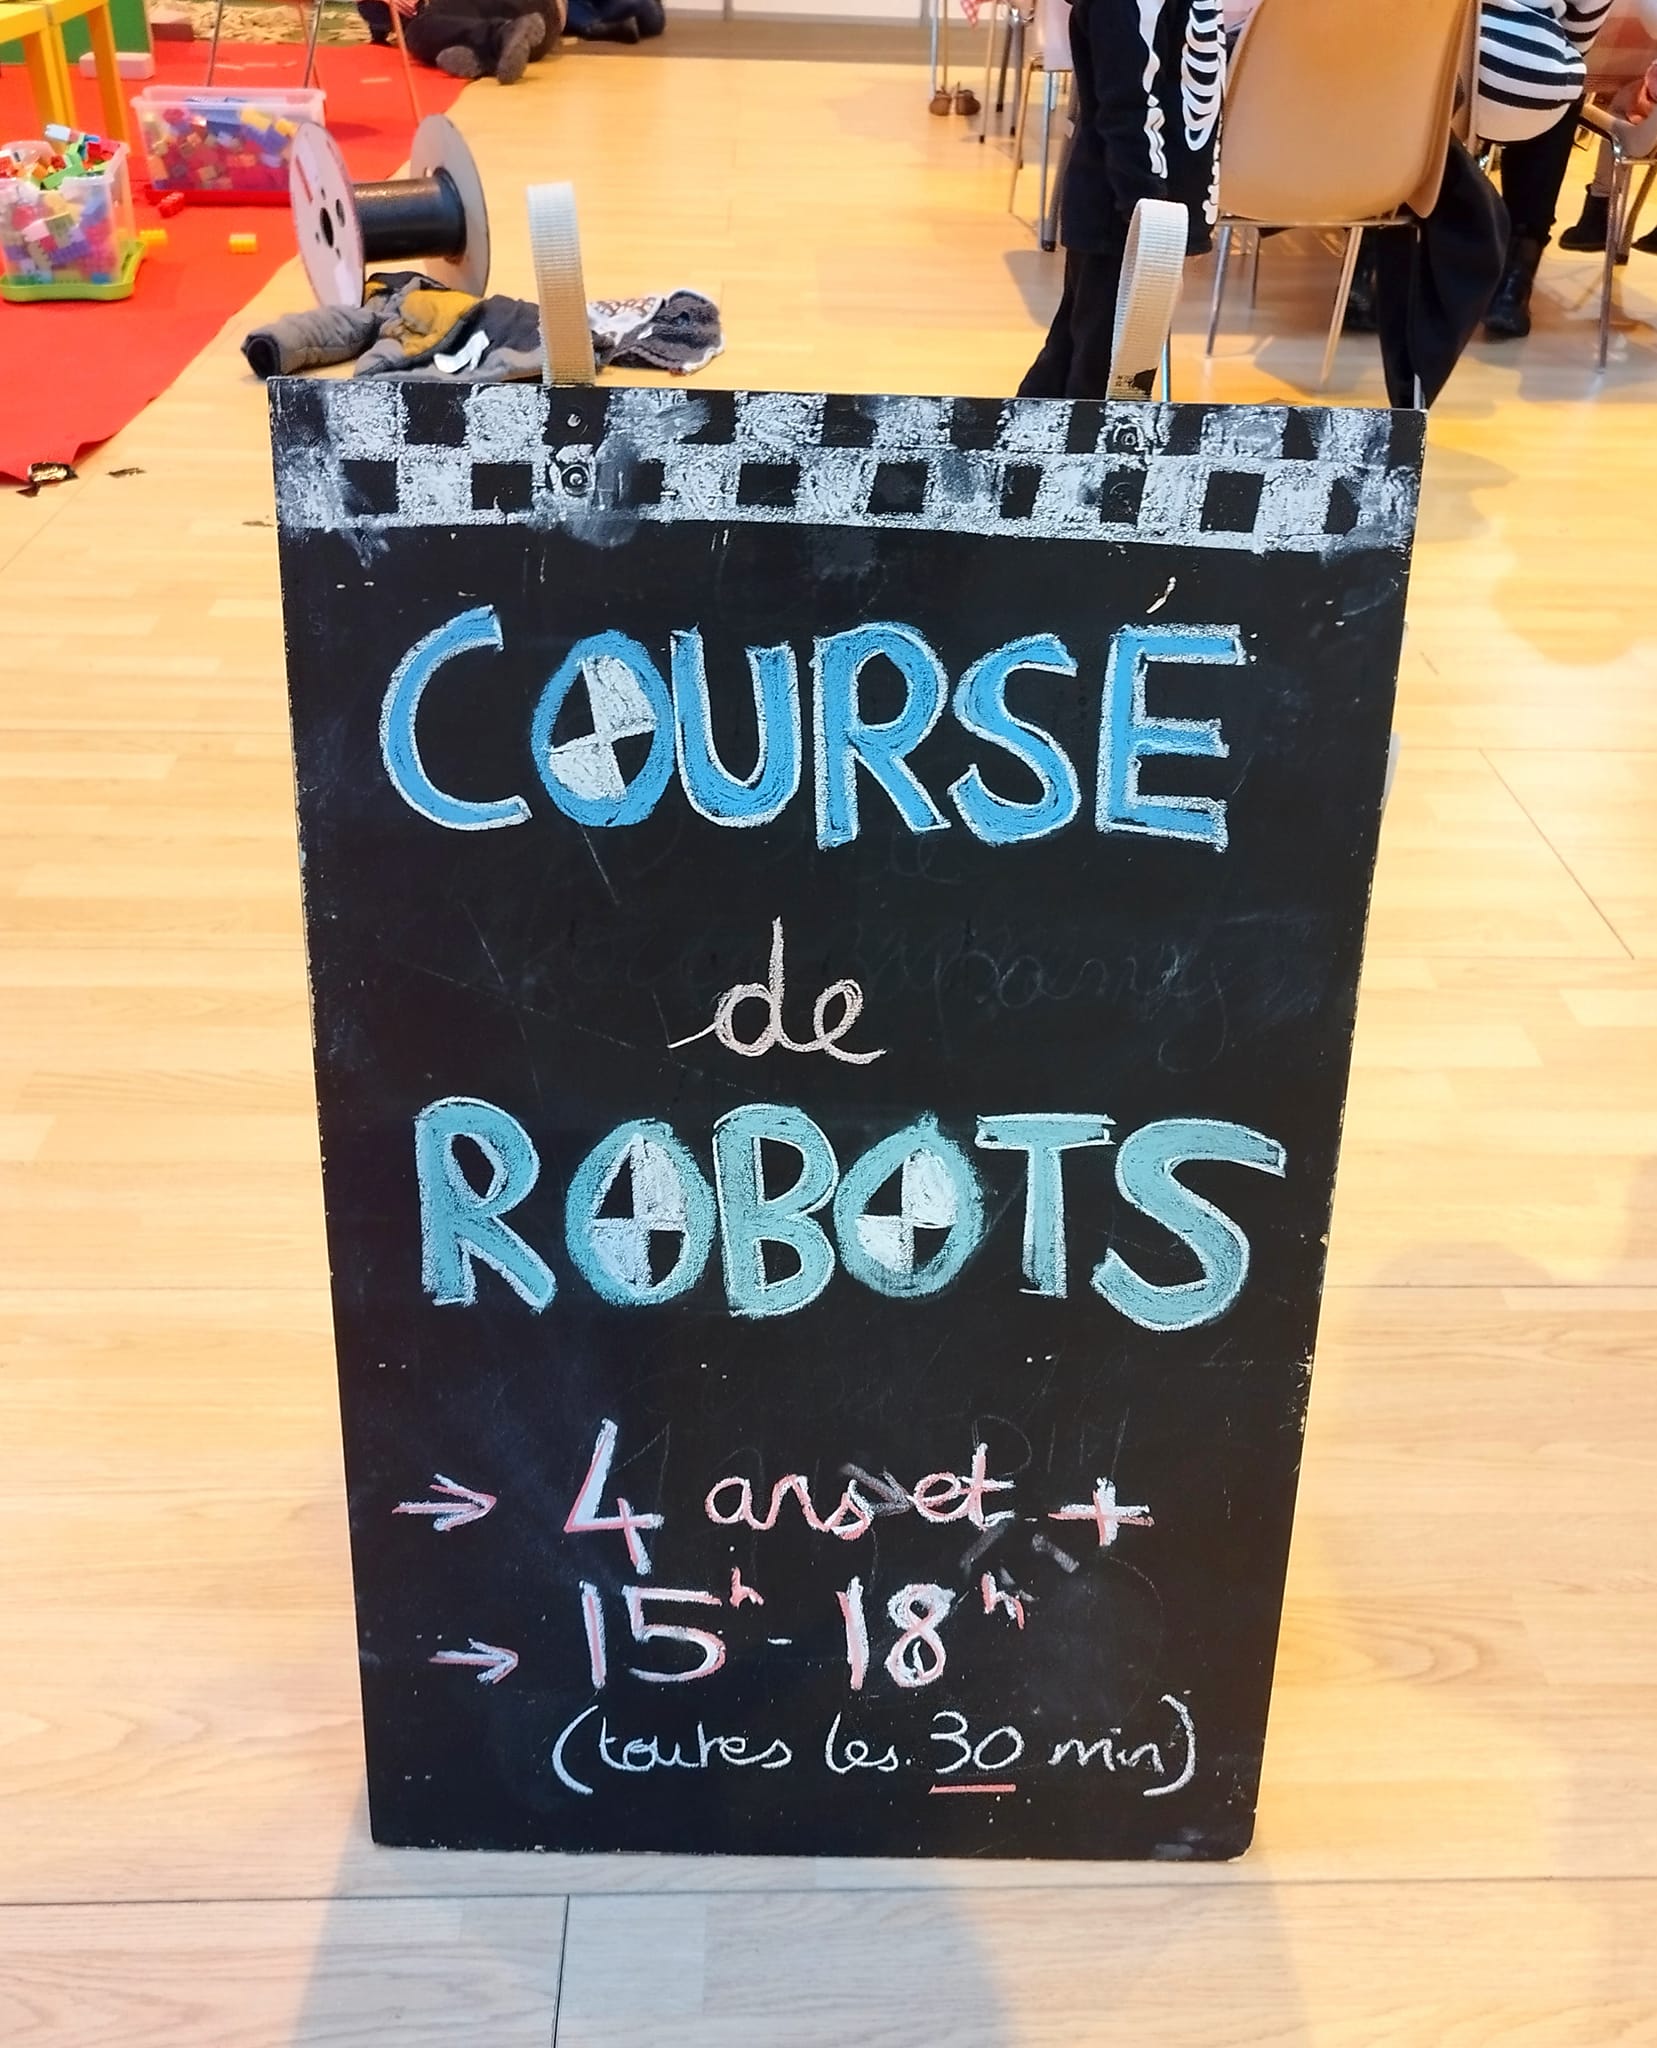 COURSÉ
de
ROBOTS
→ 4 ans et +
→ 15h - 18h
(toutes les 30 min)